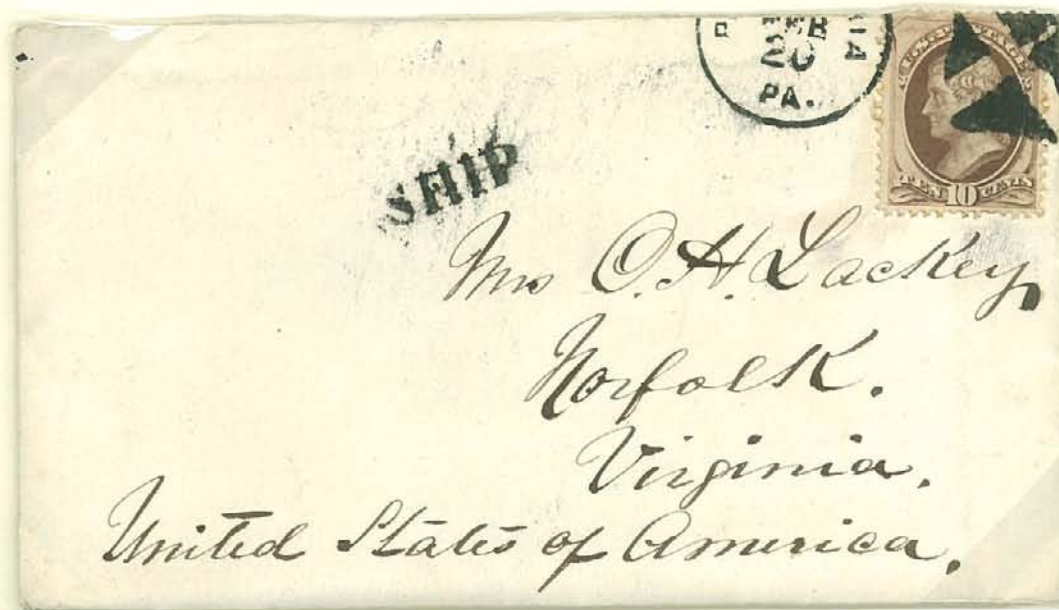 FEB
20
PA.
SHIP
TEN 10 CENTS
Mrs O. H. Lackey,
Norfolk.
Virginia.
United States of America.